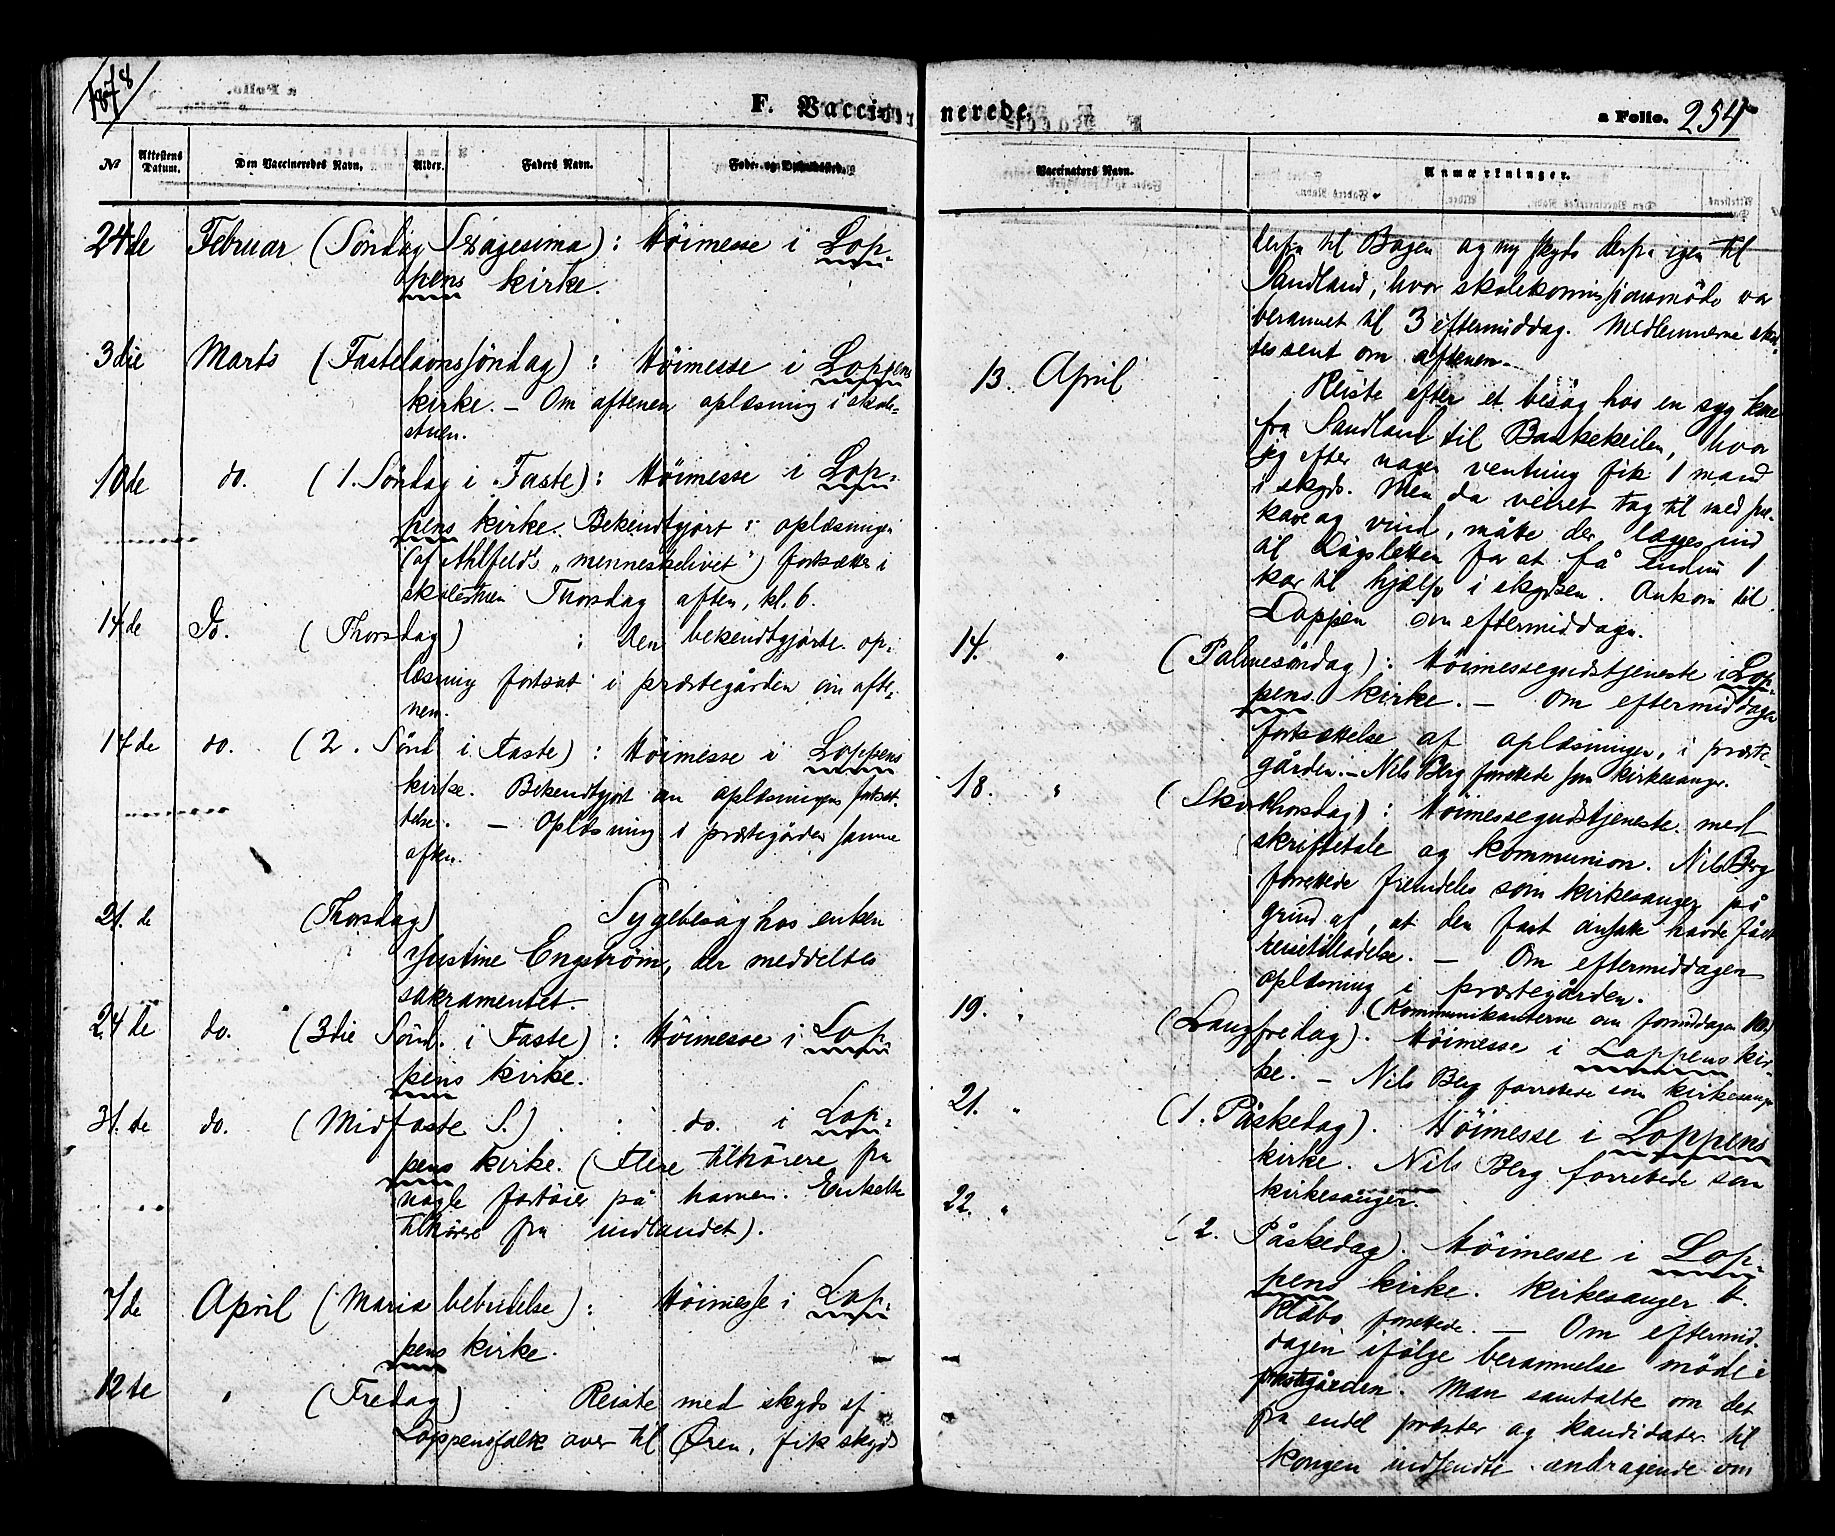 1878
F. Vaccinerede.
a Folio. 254
№ Attestens Datum. Den Vaccineredes Navn. Alder. Faders Navn. Føde- og
Vaccinators Navn. Anmærkninger.
24de Februar (Söndag Sexagesima): Höimesse i Lop-
pens kirke.
3die Marts (Fastelavnssöndag): Höimesse i Loppens
kirke. – Om aftenen oplæsning i skole-
stuen.
10de do. (1. Söndag i Faste): Höimesse i Lop-
pens kirke. Bekendtgjort: oplæsningen
(af Ahlfelds „menneskelivet") fortsættes i
skolestuen Thorsdag aften, kl. 6.
14de Do. (Thorsdag) : Den bekendtgjorte op-
læsning fortsat i præstegården om afte-
nen.
17de do. (2. Sönd. i Faste): Höimesse i Loppens
kirke. Bekendtgjort om oplæsningens fortsæt-
telse. – Oplæsning i præstegården samme
aften.
21.de (Thorsdag) Sygebesög hos enken
Justine Engström, der meddeltes
sakramentet.
24de do. (3die Sönd. i Faste): Höimesse i Lop-
pens kirke.
31.te do. (Midfaste S.) : do. i Lop-
pens kirke. (Flere tilhörere fra
nogle fartöier på havnen. Enkelte
tilhörere fra indlandet).
7de April (Maria bebudelse): Höimesse i Lop-
pens kirke.
12te " (Fredag) Reiste med skyds af
Loppensfolk over til Øren, fik skyds
derfra til Bogen og ny skyds derfra igen til
Sandland, hvor skolekommissionsmöde var
berammet til 3 eftermiddag. Medlemmerne
sent om aftenen.
13. April Reiste efter et besög hos en syg kone
fra Sandland til Bankekeilen, hvor
jeg efter nogen venting fik 1 mand
i skyds. Men da veiret tog til med
kave og vind, måtte der lægges ind
til Lögsletten for at få endnu 1
kar til hjælp i skydsen. Ankom til
Loppen om eftermiddagen.
14. " (Palmesöndag): Höimessegudstjeneste i Lop-
pens kirke. – Om eftermiddagen
fortsættelse af oplæsningen, i præste-
gården. – Nils Berg forrettede som kirkesanger.
18. " (Skjærthorsdag): Höimessegudstjeneste med
skriftetale og kommunion. Nils Berg
forrettede fremdeles som kirkesanger på
grund af, at den fast ansatte havde fået
reisetilladelse. – Om eftermiddagen
oplæsning i præstegården.
(Kommunikanterne om formiddagen
19. " (Langfredag). Höimesse i Loppens kir-
ke. – Nils Berg forrettede som kirkesanger
21. " (1. Påskedag). Höimesse i Loppens
kirke. Nils Berg forrettede som
kirkesanger.
22. " (2. Påskedag). Höimesse i Lop-
pens kirke. Kirkesanger
forrettede. – Om eftermid-
dagen ifölge berammelse möde i
præstegården. Man samtalte om det
fra endel præster og kandidater til
kongen indsendte andragende om